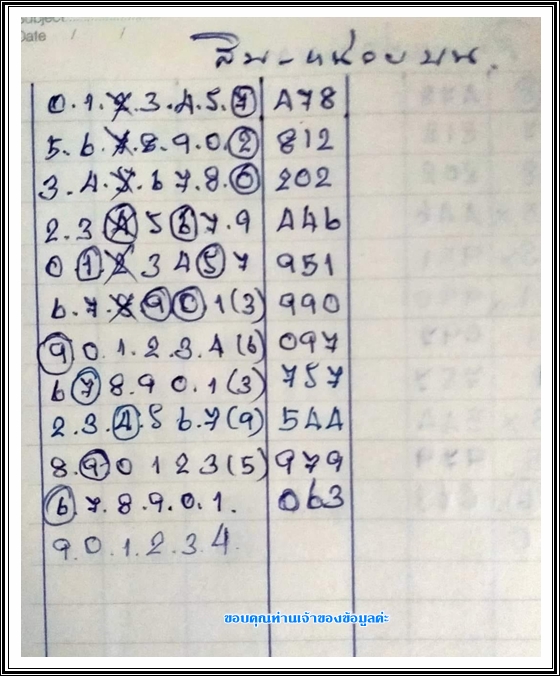 Subject
Date / /
สิบ-หน่วยบน.
0.1.2.3.4.5.7 478
5.6.7.8.9.0.2 812
3.4.5.6 7.8.0 202
2.3 4 5 6 7.9 446
0 1 2 3 4 5 7 951
6.7.8 9 0 1(3) 990
9 0.1.2.3.4(6) 097
6 7 8.9 0.1(3) 757
2.3.4.5 6.7(9) 544
8.9 0 1 2 3(5) 979
6.7.8.9.0.1. 063
9.0.1.2.3.4.
ขอบคุณท่านเจ้าของข้อมูลค่ะ